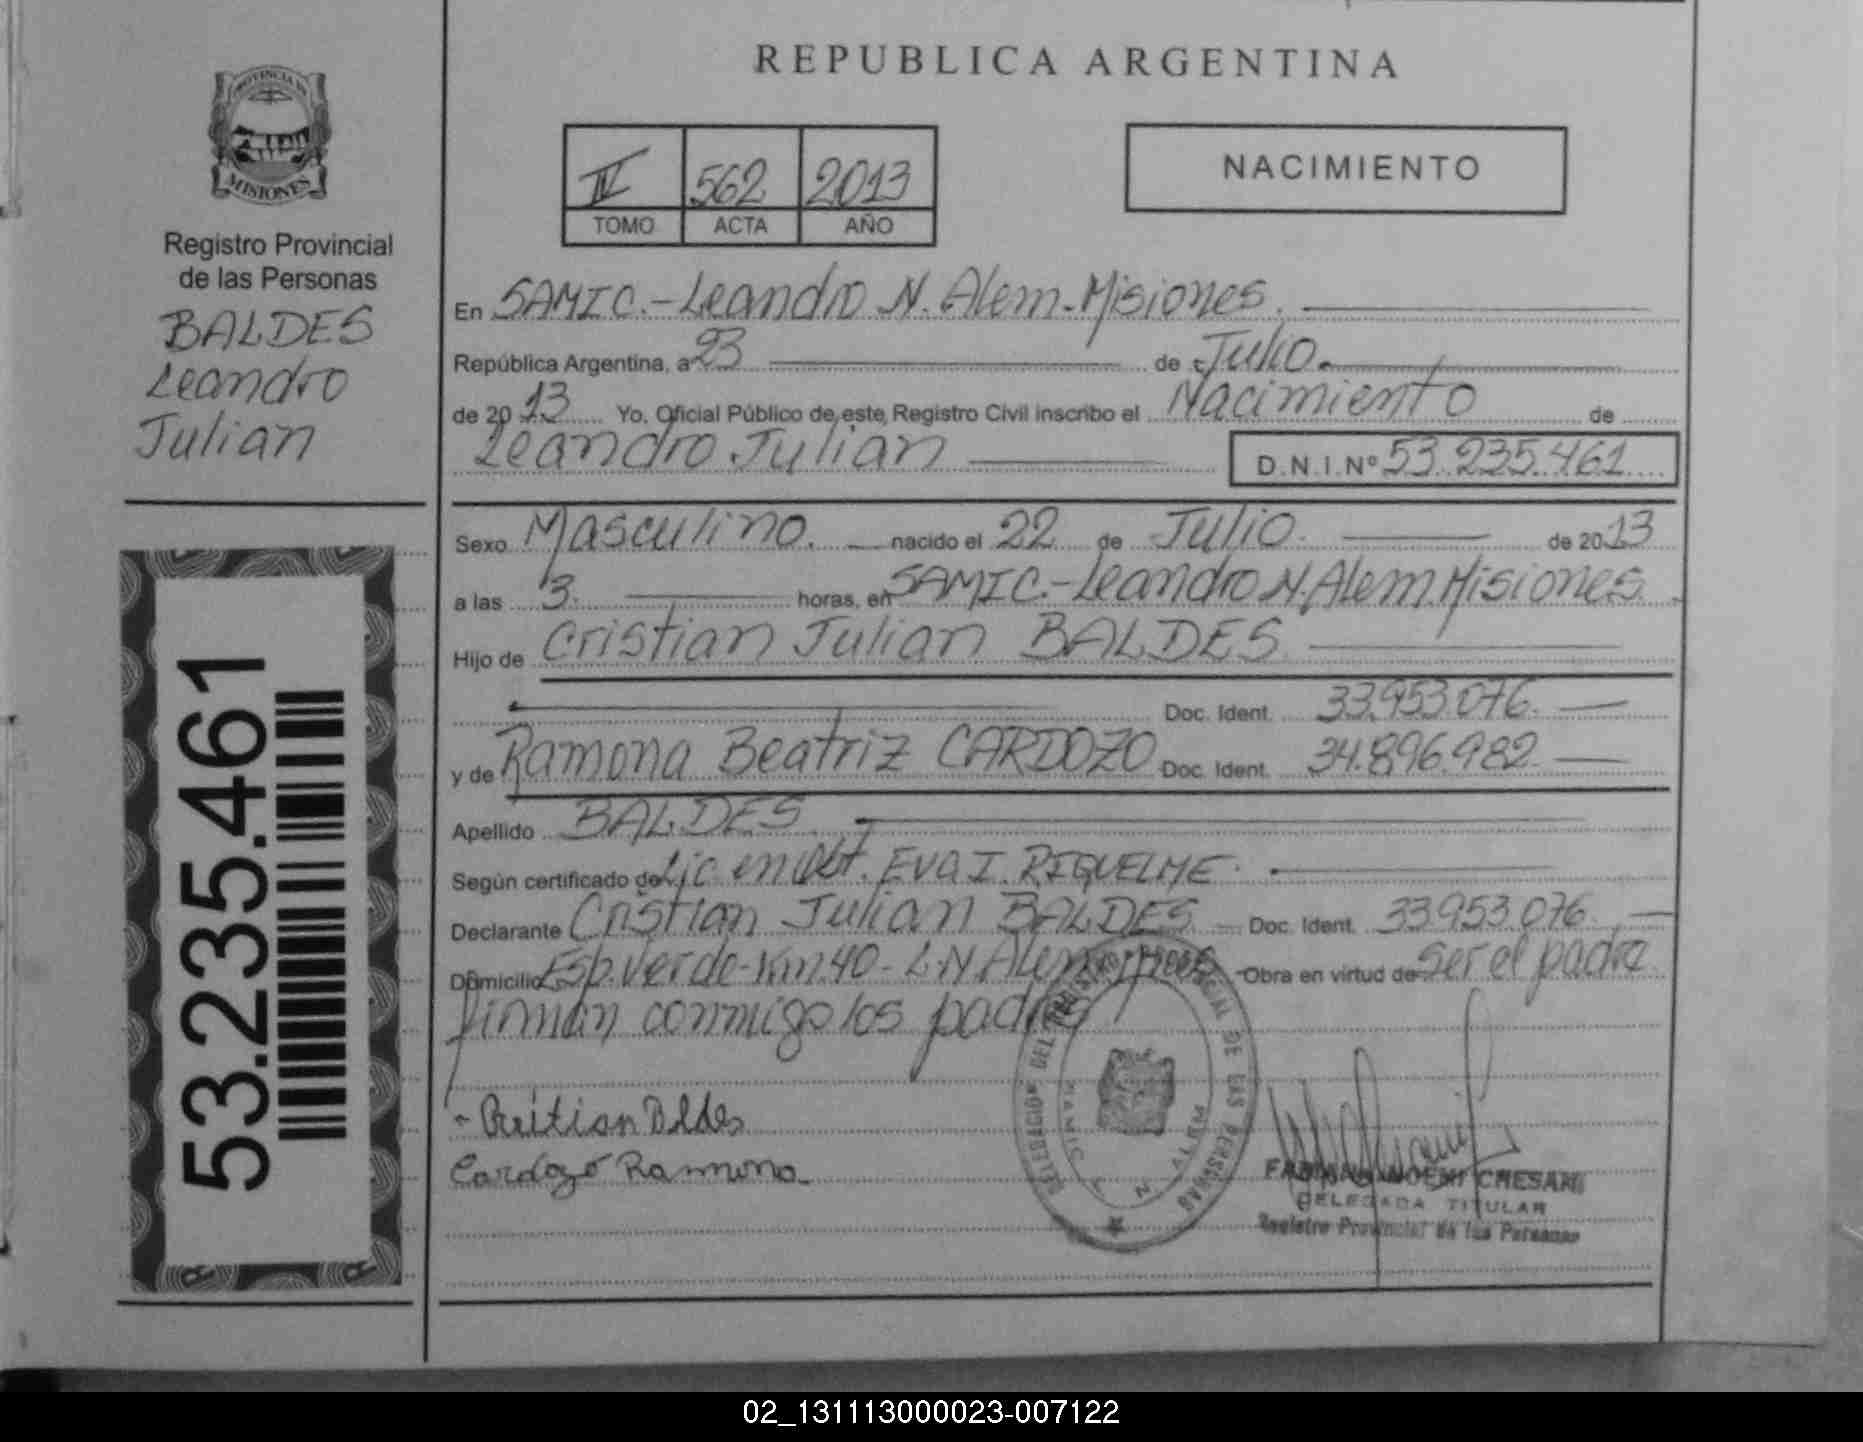 REPUBLICA ARGENTINA
PROVINCIA DE
MISIONES
Registro Provincial
de las Personas
BALDES
Leandro
Julian
53.235.461
IV 562 2013
TOMO ACTA AÑO
NACIMIENTO
En SAMIC.-Leandro N. Alem-Misiones.
República Argentina, a 23 de Julio.
de 2013 Yo. Oficial Público de este Registro Civil inscribo el Nacimiento de
Leandro Julian D.N.I.Nº 53.235.461
Sexo Masculino. nacido el 22 de Julio. de 2013
a las 3. horas, en SAMIC.-Leandro N. Alem.Misiones.
Hijo de Cristian Julian BALDES
Doc. Ident. 33.953.076.
y de Ramona Beatriz CARDOZO Doc. Ident. 34.896.982
Apellido BALDES
Según certificado de Lic. en Obst. Eva I. RIQUELME.
Declarante Cristian Julian BALDES Doc. Ident. 33.953.076.
Domicilio Esp. Verde-Km.40-L.N.Alem Obra en virtud de Ser el padre
firman conmigo los padres
Cristian Baldes
Cardozo Ramona
DELEGACION DEL REGISTRO PROVINCIAL DE LAS PERSONAS
SAMIC
L N ALEM
FABIANA NOEMI CHESANI
DELEGADA TITULAR
Registro Provincial de las Personas
02_131113000023-007122